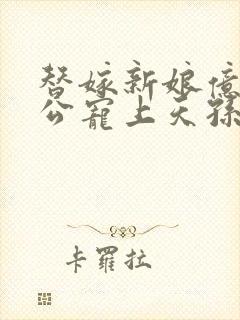 替嫁新娘億
公寵上天孫
卡羅拉